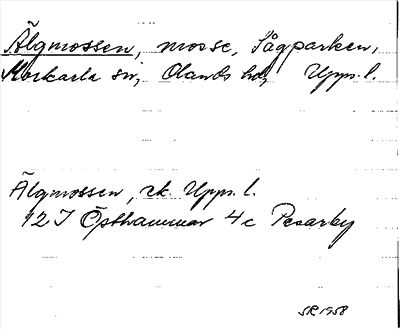 Älgmossen, mosse, Sågparken,
Morkarla sn, Olands hd, Upps. l.
Älgmossen, ek. Upps. l.
12 I Östhammar 4c Pesarby
SR 1958